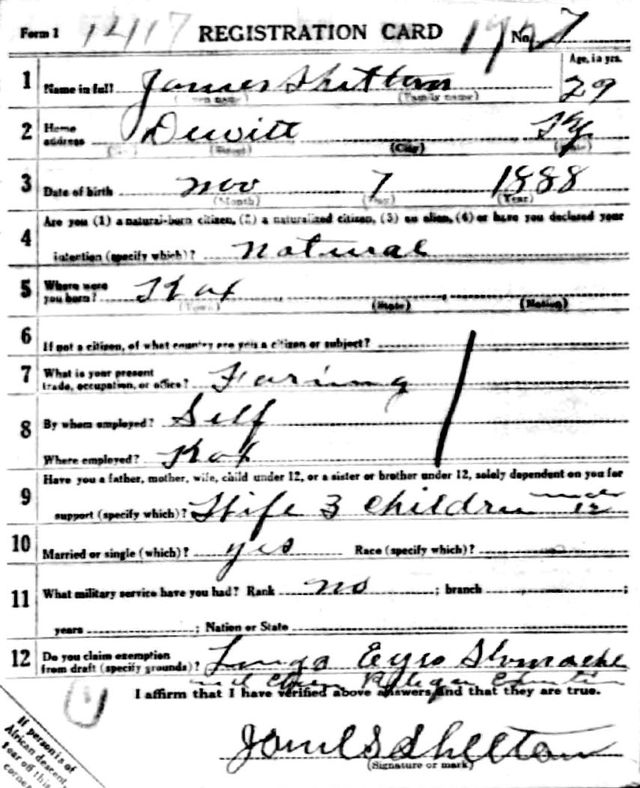 Form 1 1417 REGISTRATION CARD No. 7
1 Name in full James Shelton Age, in yrs. 29
(Family name)
2 Home address Dewitt Ky
(Street) (City) (State)
3 Date of birth Nov 7 1888
(Month) (Day) (Year)
Are you (1) a natural-born citizen, (2) a naturalized citizen, (3) an alien, (4) or have you declared your
4 intention (specify which)? Natural
5 Where were you born? Kox
(Town) (State) (Nation)
6 If not a citizen, of what country are you a citizen or subject?
7 What is your present trade, occupation, or office? Faring
8 By whom employed? Self
Where employed? Kox
Have you a father, mother, wife, child under 12, or a sister or brother under 12, solely dependent on you for
9 support (specify which)? Wife 3 children under 12
10 Married or single (which)? yes Race (specify which)?
11 What military service have you had? Rank no ; branch ;
years ; Nation or State
12 Do you claim exemption from draft (specify grounds)? Lungs Eyes Stomache
I affirm that I have verified above answers and that they are true.
James Shelton
(Signature or mark)
If person is of
African descent,
tear off this
corner